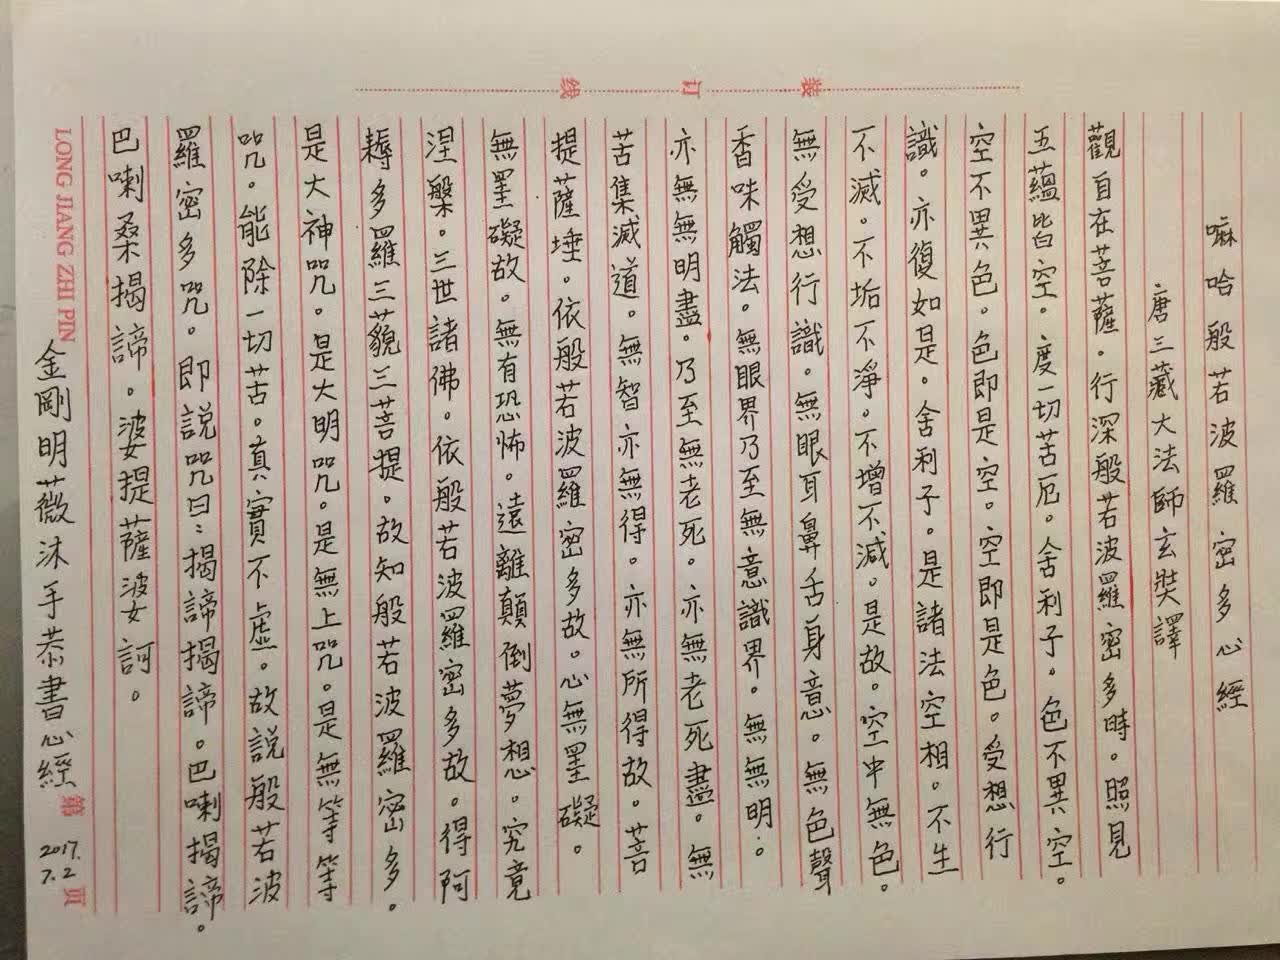 装订线
嘛哈般若波羅密多心經
唐三藏大法師玄奘譯
觀自在菩薩。行深般若波羅密多時。照見
五蘊皆空。度一切苦厄。舍利子。色不異空。
空不異色。色即是空。空即是色。受想行
識。亦復如是。舍利子。是諸法空相。不生
不滅。不垢不淨。不增不減。是故。空中無色。
無受想行識。無眼耳鼻舌身意。無色聲
香味觸法。無眼界乃至無意識界。無無明。
亦無無明盡。乃至無老死。亦無老死盡。無
苦集滅道。無智亦無得。亦無所得故。菩
提薩埵。依般若波羅密多故。心無罣礙。
無罣礙故。無有恐怖。遠離顛倒夢想。究竟
涅槃。三世諸佛。依般若波羅密多故。得阿
耨多羅三藐三菩提。故知般若波羅密多。
是大神咒。是大明咒。是無上咒。是無等等
咒。能除一切苦。真實不虛。故説般若波
羅密多咒。即説咒曰：揭諦揭諦。巴喇揭諦。
巴喇桑揭諦。婆提薩婆訶。
金剛明薇沐手恭書心經
2017.
7.2
LONG JIANG ZHI PIN
第 页